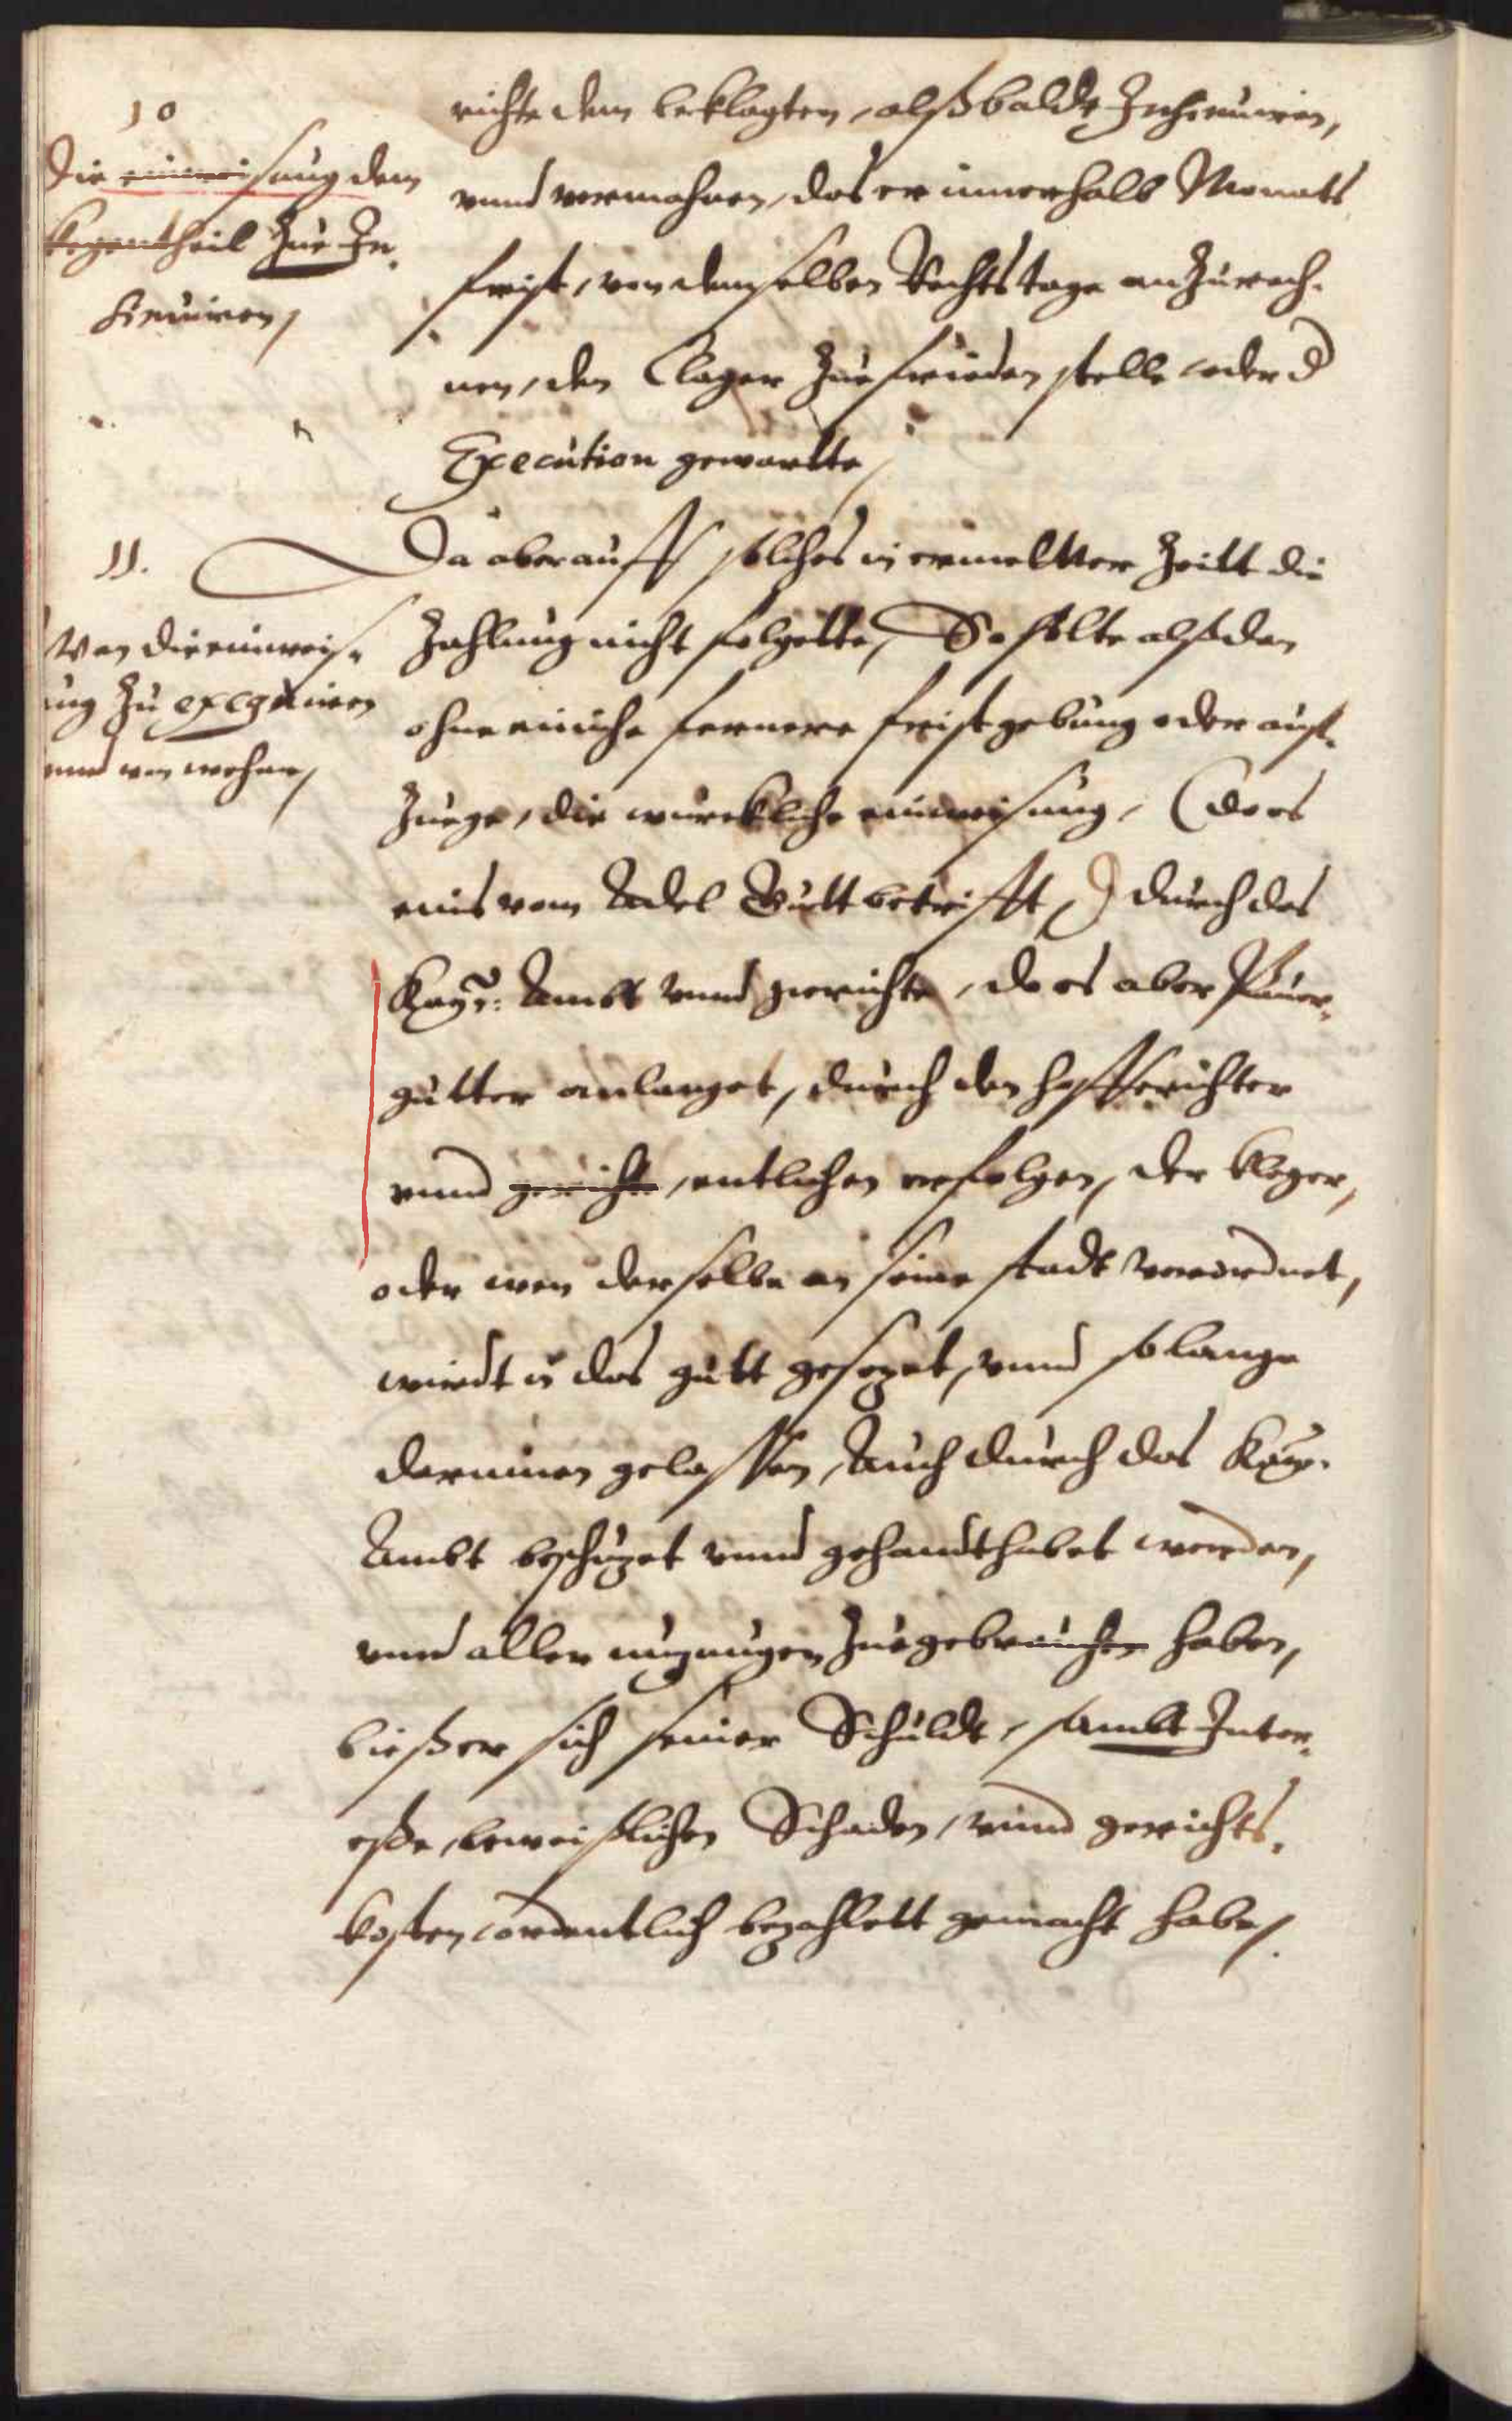 10
Die einweisung dem
kegentheil zue In-
sinuiren,
richte dem beklagten, alßbalde Insinuiren,
vnnd vermahnen, das er innerhalb Monats
frist, von demselben Rechtstage anzurech-
nen, den Clager zue frieden stelle oder d
Execution gewartte,
11.
Wan die einweis-
ung zu exequiren
vnnd von wehme,
Da aber auff solches in ermeltter Zeitt die
Zahlung nicht folgette, So solte alßdan
ohne einiche fernere fristgebung oder auf-
zuege, die wurckliche einweisung, (do es
eins vom Adel Gutt betrifft,) durch das
Kayr: Ambt vnnd gerichte, do es aber Pauer-
gutter anlanget, durch den hoffrichter
vnnd gerichte, entlichen erfolgen, der kleger,
oder wen derselbe an seine stadt verordnet,
wirdt in das gutt gesezet, vnnd solange
darinnen gelassen, Auch durch das Kay.
Ambt beschuzet vnnd gehandthabet werden,
vnnd aller nuzungen zuegebrauchen haben,
bießer sich seiner Schuldt, sambt Inter-
esse, beweißlichen Schaden, vnnd gerichts-
kosten, ordentlich bezahlett gemacht habe,